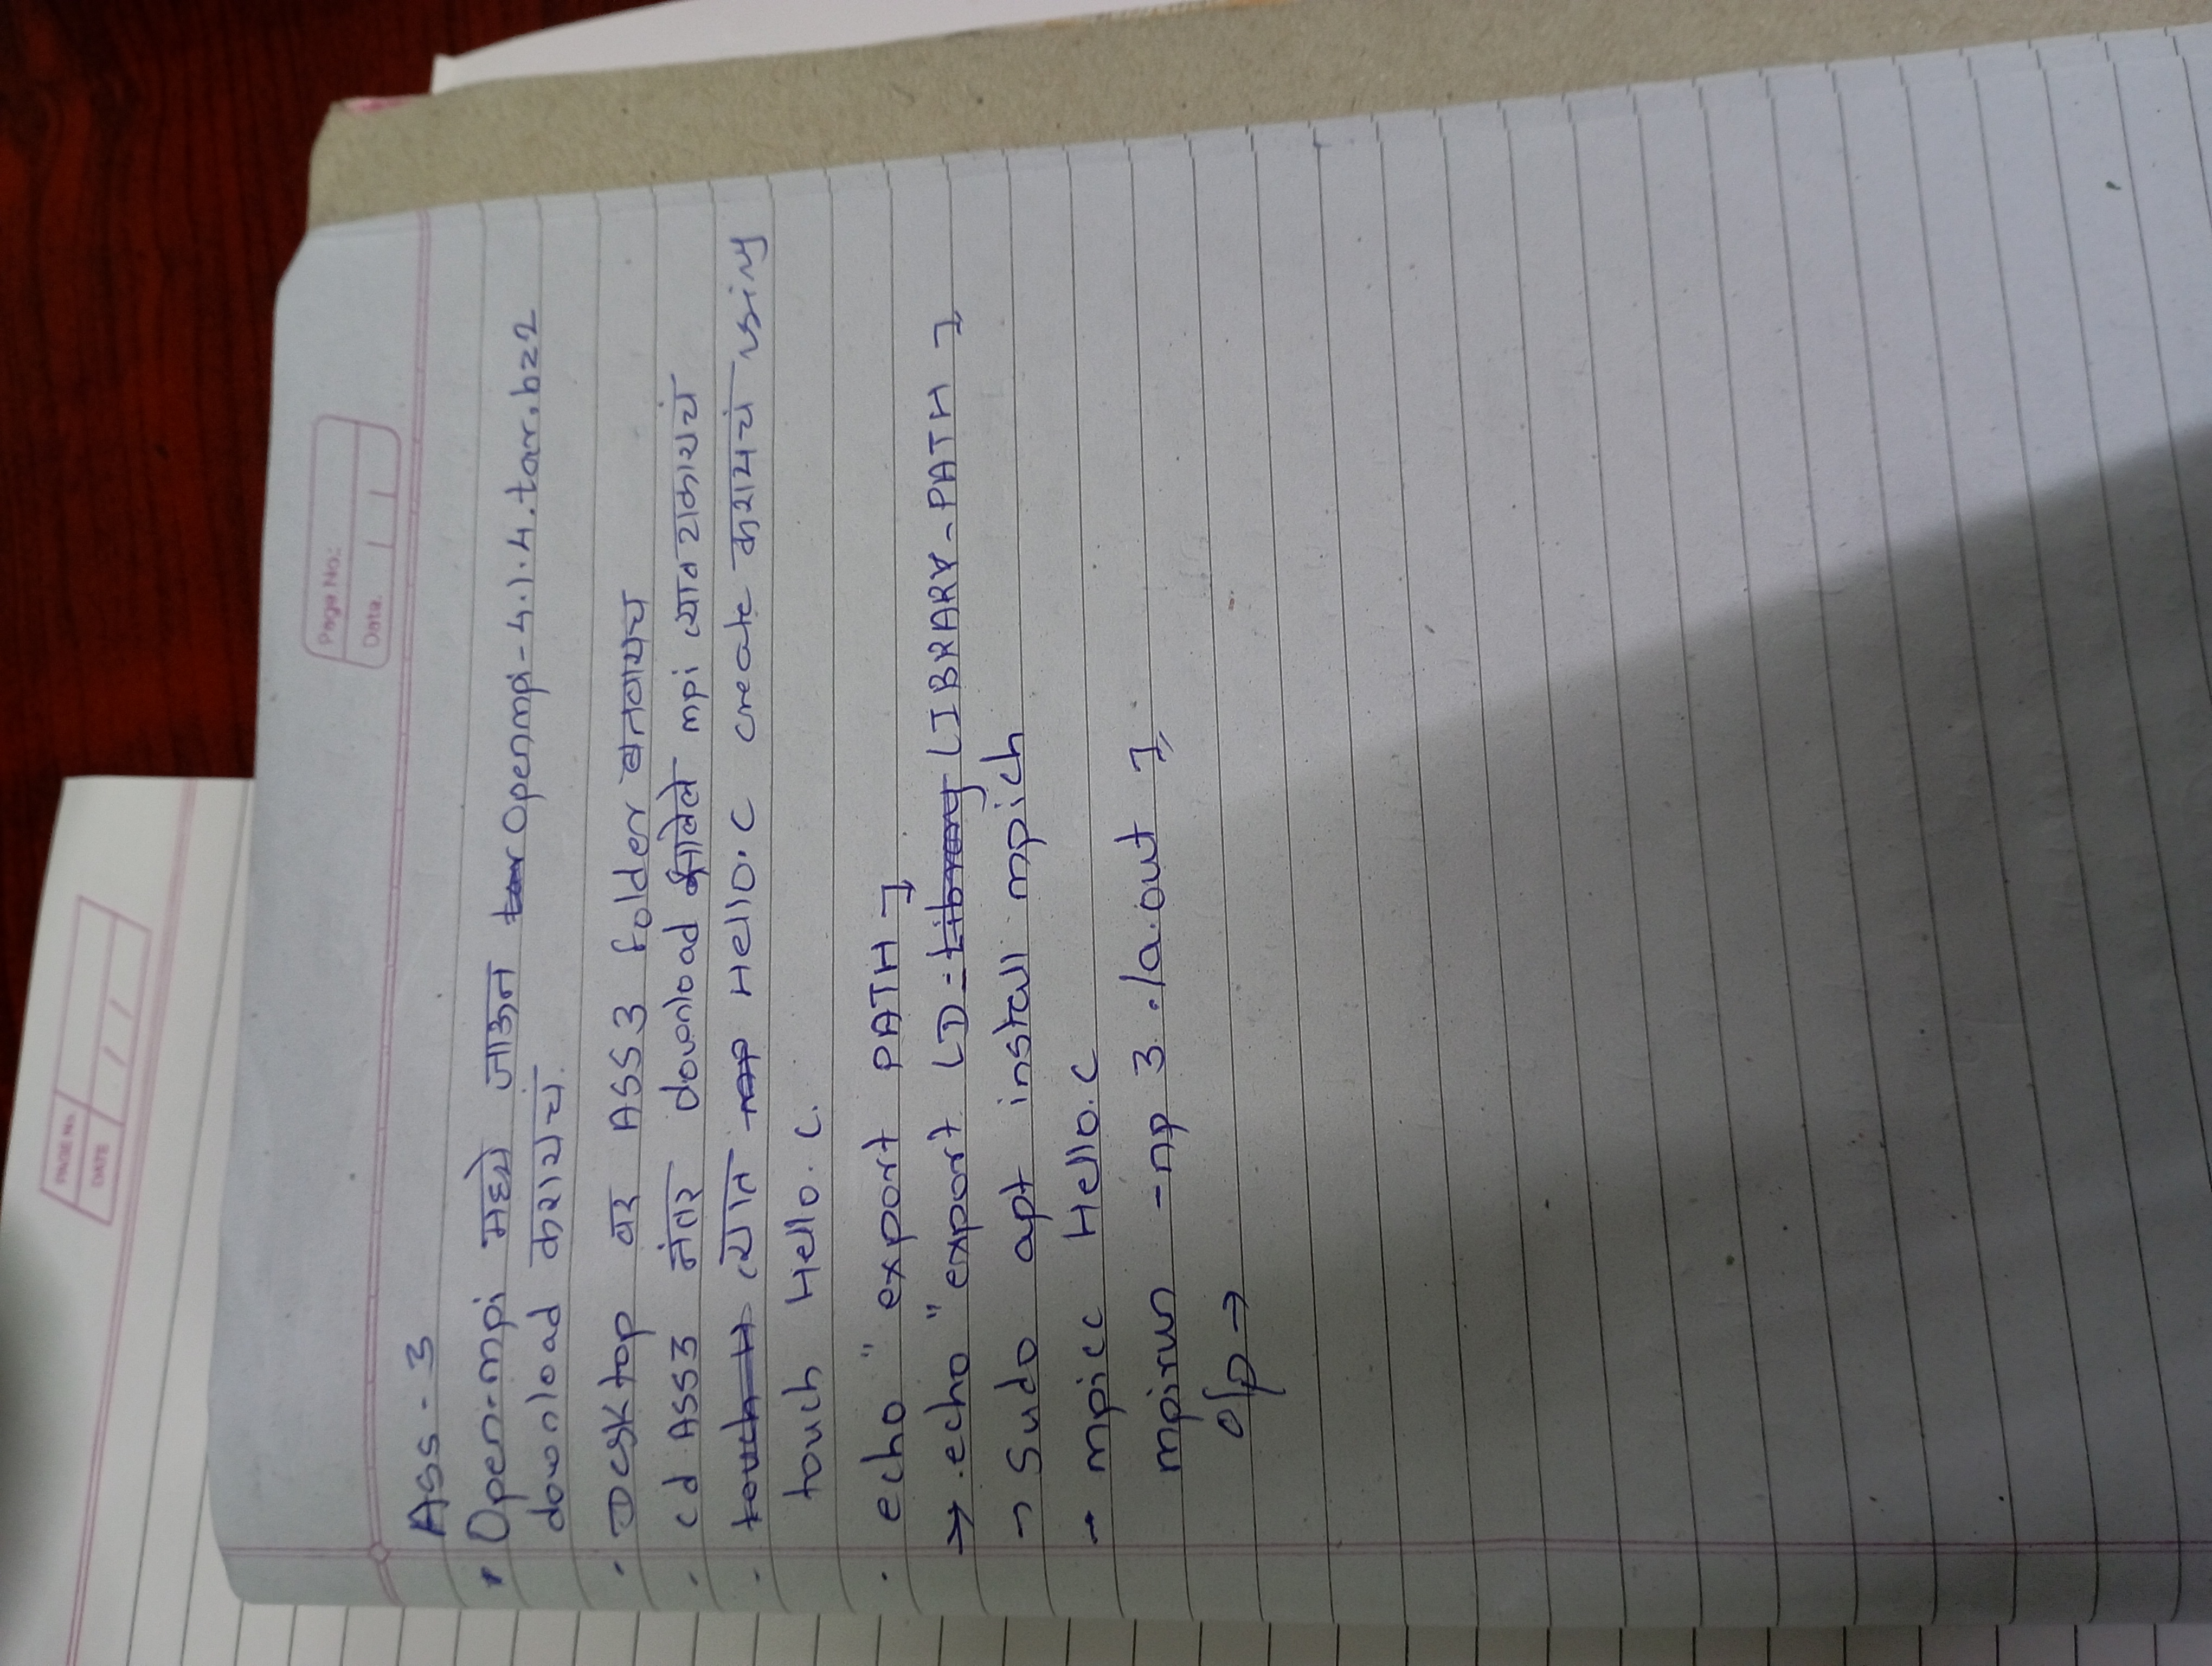 PAGE No.
DATE / /
Page No:
Date. | |
Ass - 3
Open-mpi मध्ये जाऊन tar Openmpi-4.1.4.tar.bz2
download करायचं.
- Desktop वर ASS3 folder बनवायच
- cd ASS3 नंतर download झालेले mpi त्यात टाकायचं
- touch H त्यात mp Hello.c create करायचं using
touch Hello.c.
. echo "export PATH ]
→ .echo "export LD=Library LIBRARY-PATH ]
→ Sudo apt install mpich
→ mpicc Hello.c
mpirun -np 3 ./a.out ]
o/p →